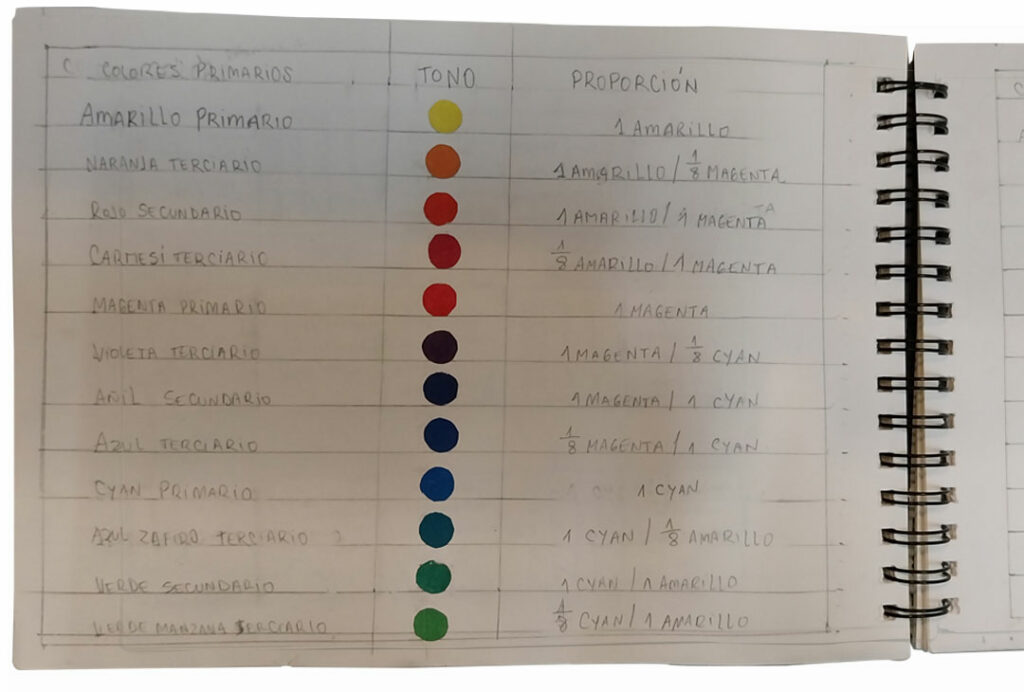 C COLORES PRIMARIOS TONO PROPORCIÓN
AMARILLO PRIMARIO 1 AMARILLO
NARANJA TERCIARIO 1 AMARILLO / 1/8 MAGENTA
ROJO SECUNDARIO 1 AMARILLO / 1 MAGENTA
CARMESÍ TERCIARIO 1/8 AMARILLO / 1 MAGENTA
MAGENTA PRIMARIO 1 MAGENTA
VIOLETA TERCIARIO 1 MAGENTA / 1/8 CYAN
AÑIL SECUNDARIO 1 MAGENTA / 1 CYAN
AZUL TERCIARIO 1/8 MAGENTA / 1 CYAN
CYAN PRIMARIO 1 CYAN
AZUL ZAFIRO TERCIARIO 1 CYAN / 1/8 AMARILLO
VERDE SECUNDARIO 1 CYAN / 1 AMARILLO
VERDE MANZANA TERCIARIO 1/8 CYAN / 1 AMARILLO